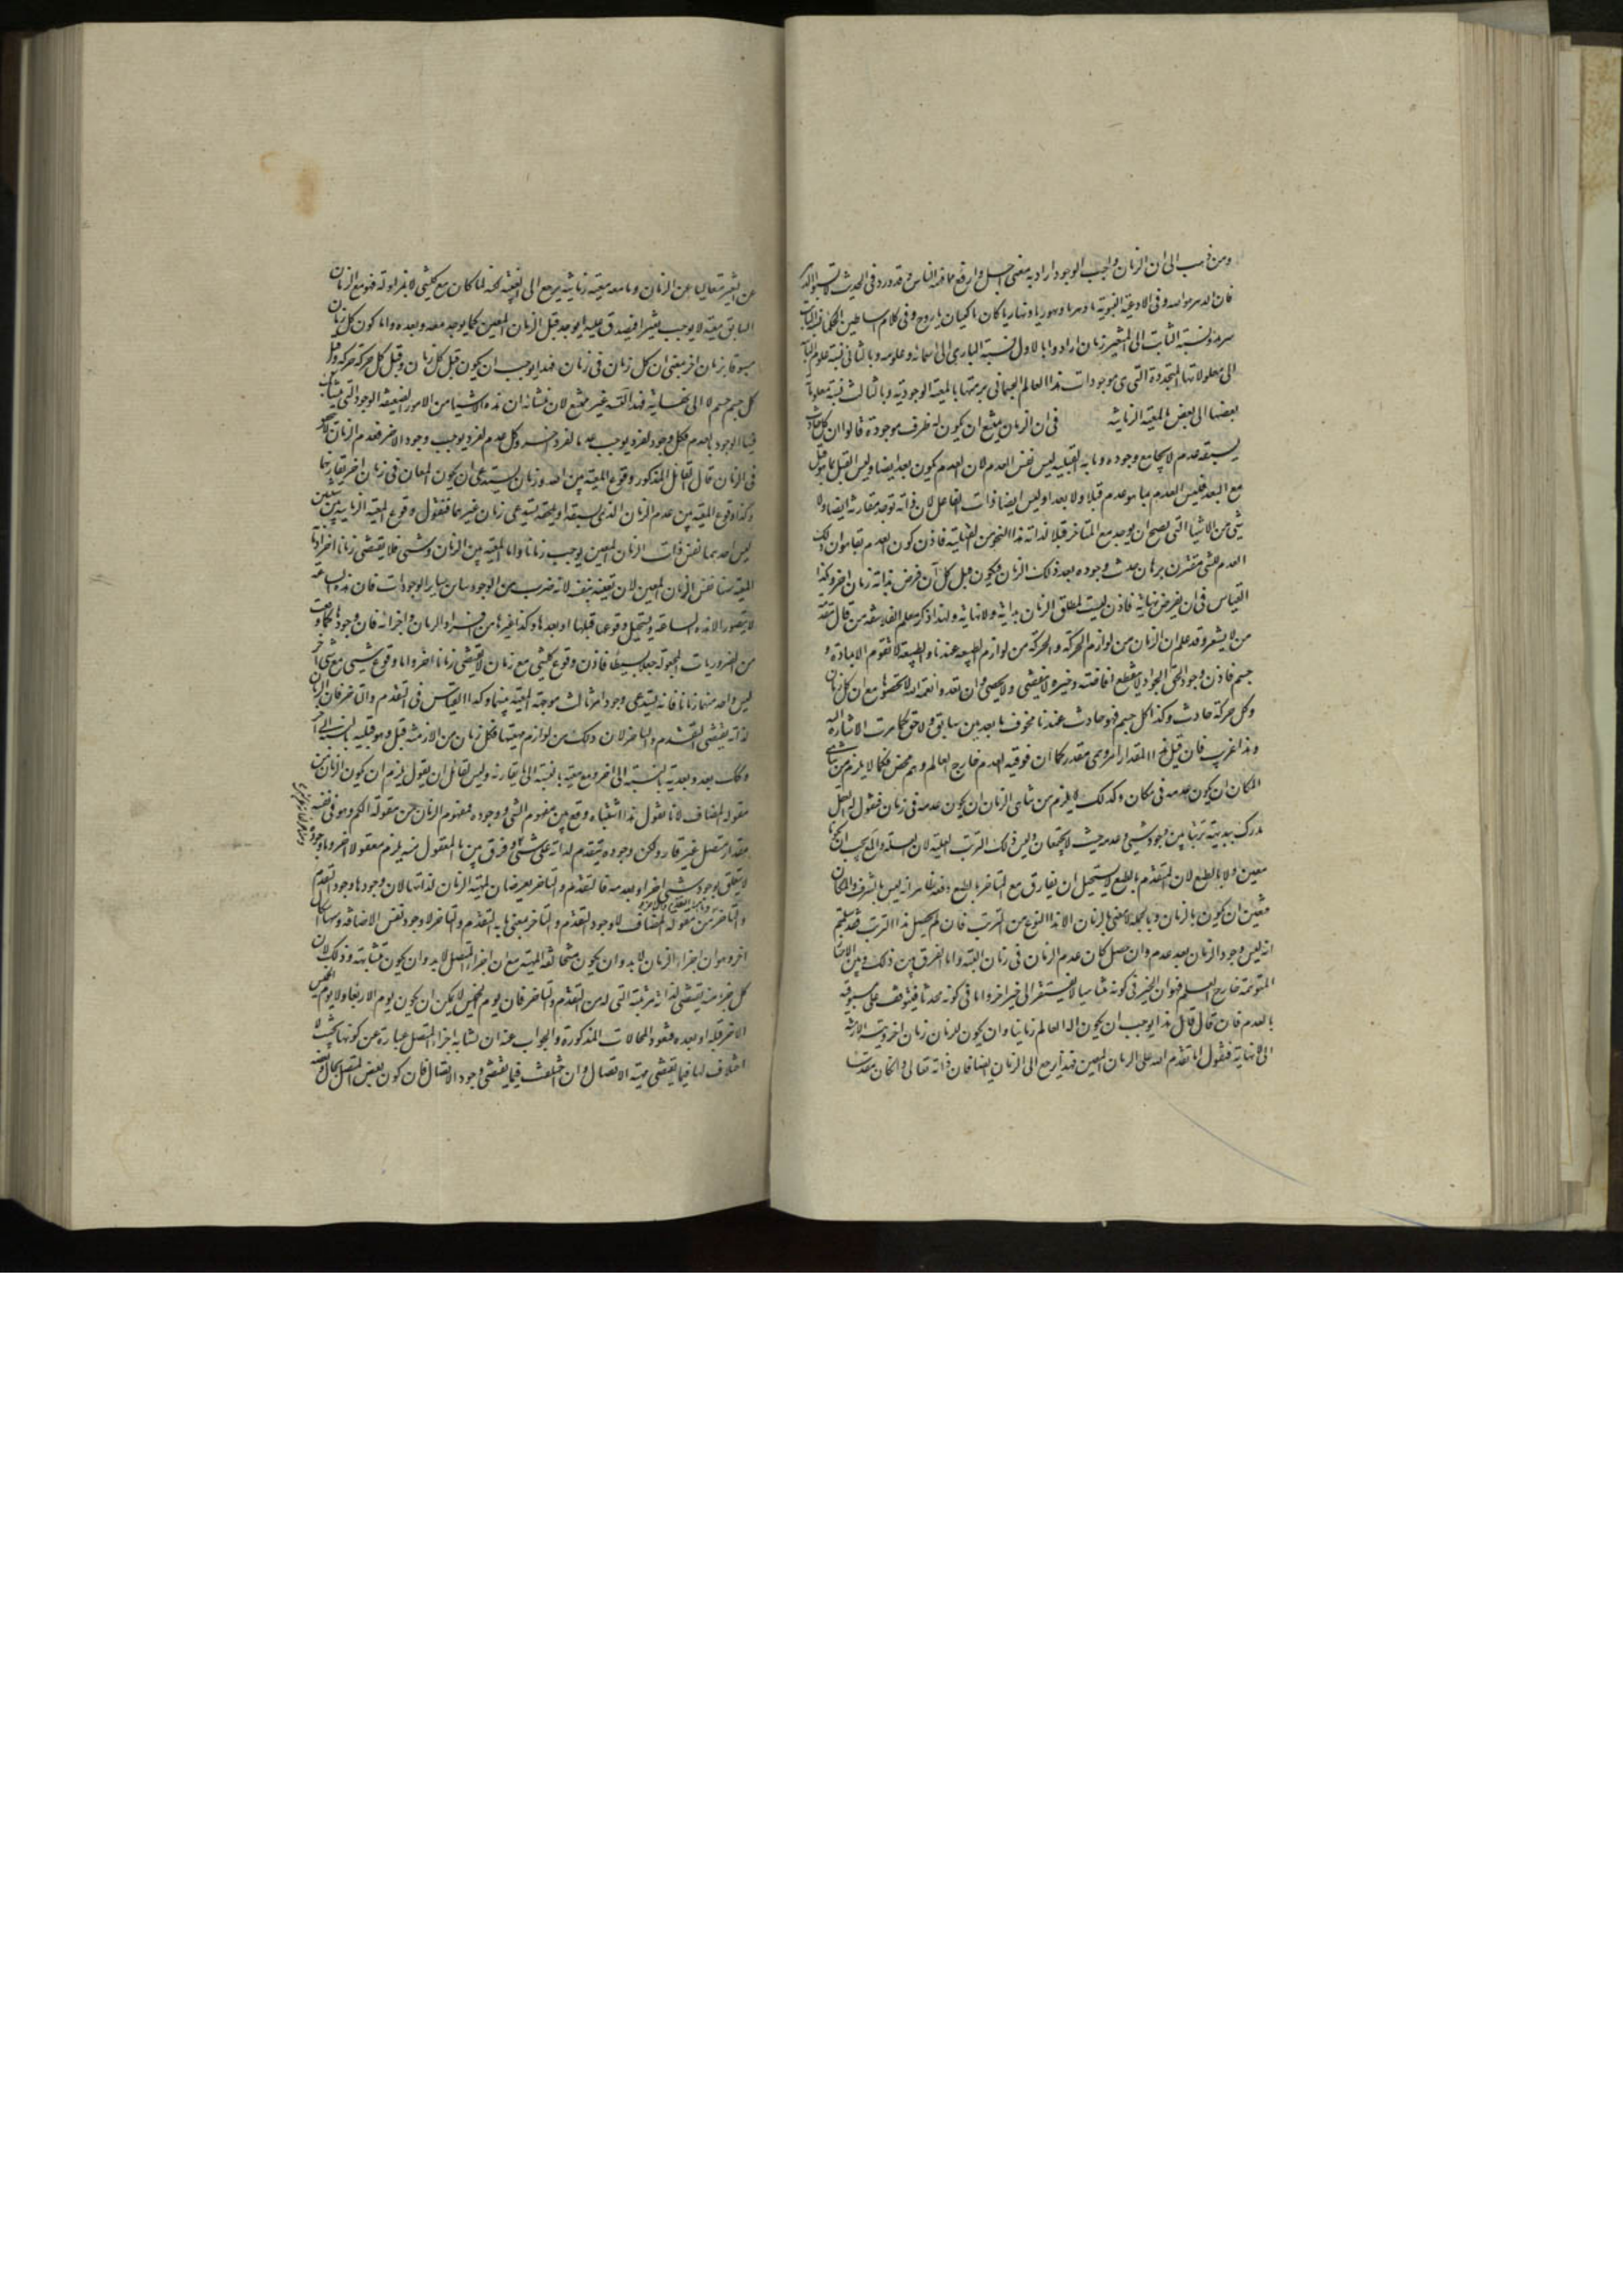 ومن ذهب الى ان الزمان واجب الوجود اراد به معنى اجل وارفع مما فهمه الناس وقد ورد فى الحديث لا تسبوا الدهر
فان الدهر هو الله وفى الادعية النبوية يا دهر يا ديهور يا ديهار يا كان يا كينان يا روح وفى كلام اساطين الحكماء نسبة الثابت
سرمد ونسبة الثابت الى المتغير زمان ارادوا بالاول نسبة البارى الى اسمائه وعلومه وبالثانى نسبة علومه الثابتة
الى معلولاتها المتجددة التى هى موجودات هذا العالم الجسمانى برمتها بالمعية الوجودية وبالثالث نسبة معلولاته
بعضها الى بعض بالمعية الزمانية فى ان الزمان يمتنع ان يكون له طرف موجود قالوا ان كل حادث
يسبقه عدم لا يجامع وجوده وما به القبلية ليس نفس العدم لان العدم يكون بعد ايضا وليس القبل بما هو قبل
مع البعد فليس العدم بما هو عدم قبلا ولا بعدا وليس ايضا ذات الفاعل لان ذاته توجد مقارنة ايضا ولا
شئ من الاشياء التى يصح ان يوجد مع المتاخر قبلا لذاته هذا النحو من القبلية فاذن كون العدم
العدم لشئ مقترن بزمان حدث وجوده بعد ذلك الزمان فيكون قبل كل آن فرض بداية زمان اخر وكذا
القياس فى ان يفرض نهاية فاذن ليست لمطلق الزمان بداية ولا نهاية ولهذا ذكر معلم الفلاسفة من قال
من لا يشعر وقد علم ان الزمان من لوازم الحركة والحركة من لوازم الطبيعة عندنا والطبيعة لا تقوم الا بمادة و
جسم فاذن وجود الحق الجواد لا ينقطع افاضته وخيره لا ينقضى ولا يحصى وان تعدوا نعمة الله لا تحصوها مع ان كل زمان
وكل حركة حادث وكذا كل جسم فهو حادث عندنا محفوف بالعدمين سابق ولاحق كما مرت الاشارة اليه
وهذا غريب فان قيل هذا المقدار امر وهمى مقدر كما ان فوقية العدم خارج العالم وهم محض فكما لا يلزم من تناهى
المكان ان يكون عدمه فى مكان وكذلك لا يلزم من تناهى الزمان ان يكون عدمه فى زمان فنقول العقل
يدرك ببديهته ترتبا بين وجود شئ وعدمه بحيث لا يجتمعان وليس ذلك الترتب العلية لان العلة والمع يجب ان يكونا
معين ولا بالطبع لان المتقدم بالطبع لا يستحيل ان يفارق مع المتاخر بالطبع وظاهر انه ليس بالشرف والمكان
فتعين ان يكون بالزمان وبالجملة لا معنى بالزمان الا هذا النوع من الترتب فان لم يحصل هذا الترتب فقد سلمتم
انه ليس وجود الزمان بعد عدم وان حصل كان عدم الزمان فى زمان البتة واما الفرق بين ذلك وبين
المتوهمة خارج العالم فهو ان الحيز فى كونه متناهيا لا يفتقر الى خير اخر واما فى كونه محدثا فيتوقف على مسبوقيته
بالعدم فان قال قائل هذا يوجب ان يكون اله العالم زمانيا وان يكون للزمان زمان اخر ويتسلسل الازمنة
الى لا نهاية فنقول اما تقدم الله على الزمان المعين فهذا يرجع الى الزمان ايضا فان ذاته تعالى وان كان مقدسا
عن التغير متعاليا عن الزمان وما معه معية زمانية يرجع الى الفيئية لكنه لما كان مع كل شئ لا بمزاولة فهو مع الزمان
السابق معية لا يوجب تغيرا فيصدق عليه انه يوجد قبل الزمان المعين كما يوجد معه وبعده واما كون كل زمان
مسبوقا بزمان اخر بمعنى ان كل زمان فى زمان فهذا يوجب ان يكون قبل كل زمان وقبل كل حركة حركة وقبل
كل جسم جسم لا الى نهاية فهذا التسلسل غير ممتنع لان منشأه ان هذه الاشياء من الامور الضعيفة الوجود التى يتشابك
فيها الوجود بالعدم فكل وجود لفرد يوجب عدما لفرد اخر وكل عدم لفرد يوجب وجود الاخر فعدم الزمان
فى الزمان قال القائل المذكور وقوع المعية بين الله وزمان يستدعى ان يكون المعان فى زمان اخر يقارنهما
وكذا وقوع المعية بين عدم الزمان الذى يسبقه او يلحقه يستدعى زمان غيرهما فنقول وقوع المعية الزمانية بين شيئين
ليس احدهما نفس ذات الزمان المعين يوجب زمانا واما المعية بين الزمان وشئ فلا يقتضى زمانا اخر اذ ما به
المعية هنا نفس الزمان المعين لان تعينه بنفسه لانه ضرب من الوجود يباين سائر الوجودات فان هذه الساعة
لا يتصور الا هذه الساعة ويستحيل وقوعها قبلها او بعدها وكذا غيرها من افراد الزمان واجزائه فان وجودها كما وجدت
من الضروريات المجعولة جعلا بسيطا فاذن وقوع كل شئ مع زمان لا يقتضى زمانا اخر واما وقوع شئ مع شئ اخر
ليس واحد منهما زمانا فانه يستدعى وجود امر ثالث موجب المعية بينهما وكذا القياس فى التقدم والتاخر فان الزمان
لذاته يقتضى التقدم والتاخر لان ذلك من لوازم مهيتها فكل زمان من الازمنة قبل وهو قبلية بالنسبة الى اخر
وكذلك بعد وبعدية بالنسبة الى اخر ومع معية بالنسبة الى ما يقارنه وليس لقائل ان يقول يلزم ان يكون الزمان من
مقولة المضاف لانا نقول هذا اشتباه وقع بين مفهوم الشئ ووجوده فمفهوم الزمان من مقولة الكم وهو فى نفسه
مقدار متصل غير قار ولكن وجوده يتقدم لذاته على شئ وفرق بين ما المعقول منه يلزم معقولا اخر وما وجوده
لا يتعلق بوجود شئ اخر او بعدمه فالتقدم والتاخر يعرضان لمهية الزمان لذاتها لان وجودها وجود التقدم
والتاخر من مقولة المضاف لا وجود التقدم والتاخر بمعنى ما به التقدم والتاخر لا وجود نفس الاضافة وههنا اشكال
اخر وهو ان اجزاء الزمان لا بد وان يكون متخالفة المهية مع ان اجزاء المتصل لا بد وان يكون متشابهة وذلك لان
كل جزء منه يقتضى لذاته مرتبته التى له من التقدم والتاخر فان يوم الخميس لا يمكن ان يكون يوم الاربعاء ولا يوم الخميس
الاخر قبله او بعده فتعود المحالات المذكورة والجواب عنه ان تشابه اجزاء المتصل عبارة عن كونها بحيث لا
اختلاف لها فيما يقتضى مهية الاتصال وان اختلفت فيما يقتضى وجود الاتصال فان كون بعض المتصل بحال وبعضه